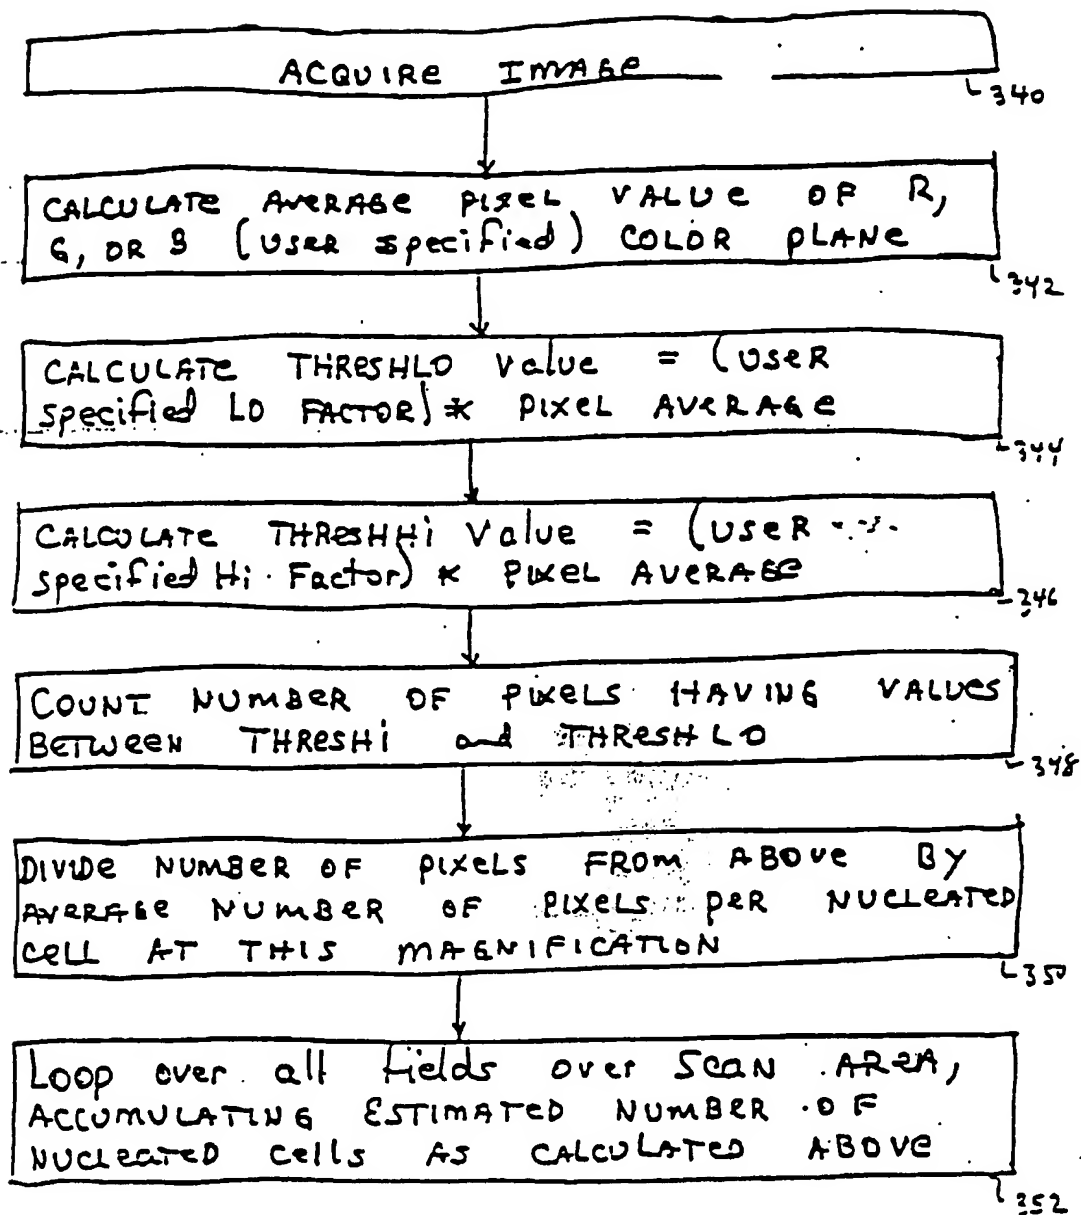 ACQUIRE IMAGE
340
CALCULATE AVERAGE PIXEL VALUE OF R,
G, OR B (USER specified) COLOR PLANE
342
CALCULATE THRESHLO Value = (USER
specified LO FACTOR) * PIXEL AVERAGE
344
CALCULATE THRESHHi Value = (USER
specified Hi Factor) * PIXEL AVERAGE
346
COUNT NUMBER OF PIXELS HAVING VALUES
BETWEEN THRESHi and THRESHLO
348
DIVIDE NUMBER OF PIXELS FROM ABOVE BY
AVERAGE NUMBER OF PIXELS PER NUCLEATED
CELL AT THIS MAGNIFICATION
350
Loop over all fields over SCAN AREA,
ACCUMULATING ESTIMATED NUMBER OF
NUCLEATED cells AS CALCULATED ABOVE
352